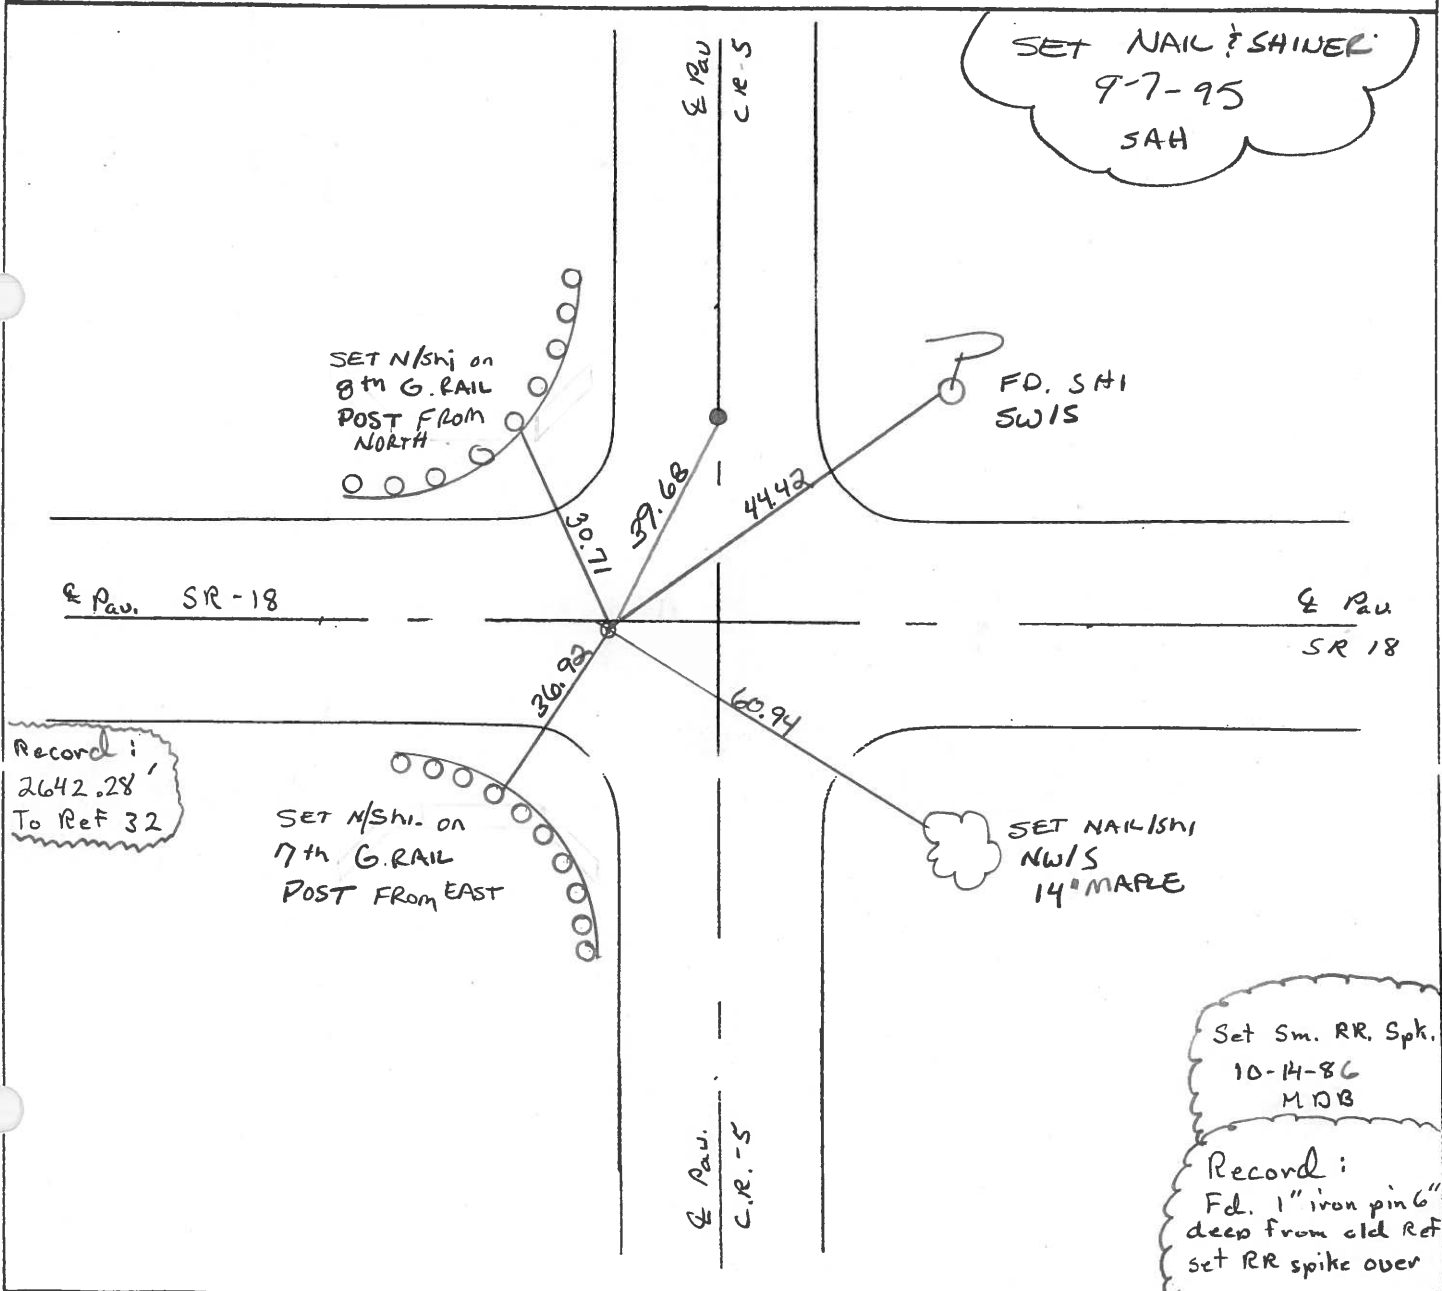 SET NAIL & SHINER
9-7-95
SAH
℄ Pav
CR-5
SET N/Shi on
8th G. RAIL
POST FROM
NORTH
FD. SHI
SW/S
39.68
44.42
30.71
℄ Pav. SR-18
℄ Pav.
SR 18
36.92
60.94
Record:
2642.28'
To Ref 32
SET N/Shi. on
7th G. RAIL
POST FROM EAST
SET NAIL/Shi
NW/S
14" MAPLE
Set Sm. RR. Spk.
10-14-86
MDB
℄ Pav.
C.R.-5
Record:
Fd. 1" iron pin 6"
deep from old Ref
set RR spike over